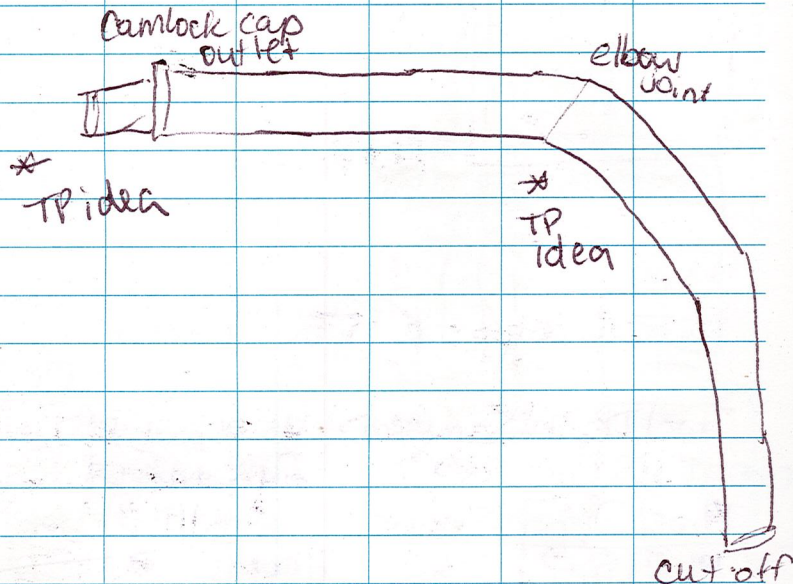 Camlock cap
outlet
elbow
joint
* TP idea
* TP
idea
cut off